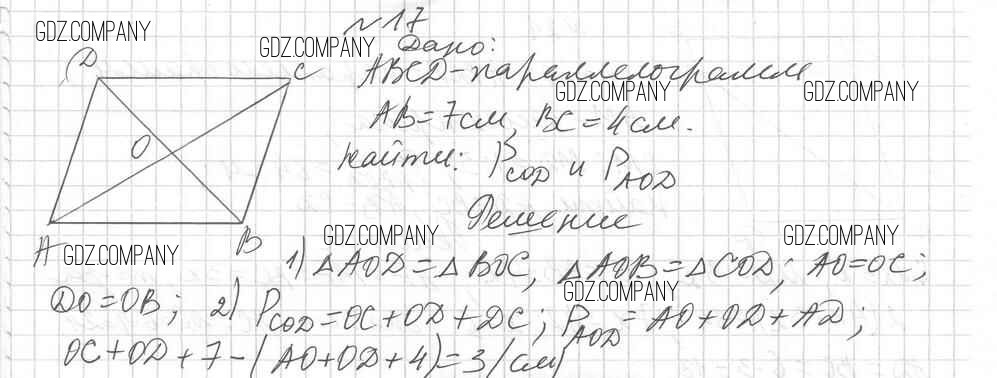 №17
GDZ.COMPANY
GDZ.COMPANY Дано:
D C ABCD - параллелограмм
GDZ.COMPANY GDZ.COMPANY
AB = 7см, BC = 4см.
O Найти: P_COD и P_AOD
Решение
A B GDZ.COMPANY GDZ.COMPANY GDZ.COMPANY
1) △AOD = △BOC, △AOB = △COD; AO = OC;
GDZ.COMPANY
DO = OB; 2) P_COD = OC + OD + DC; P_AOD = AO + OD + AD;
OC + OD + 7 - (AO + OD + 4) = 3 (см)